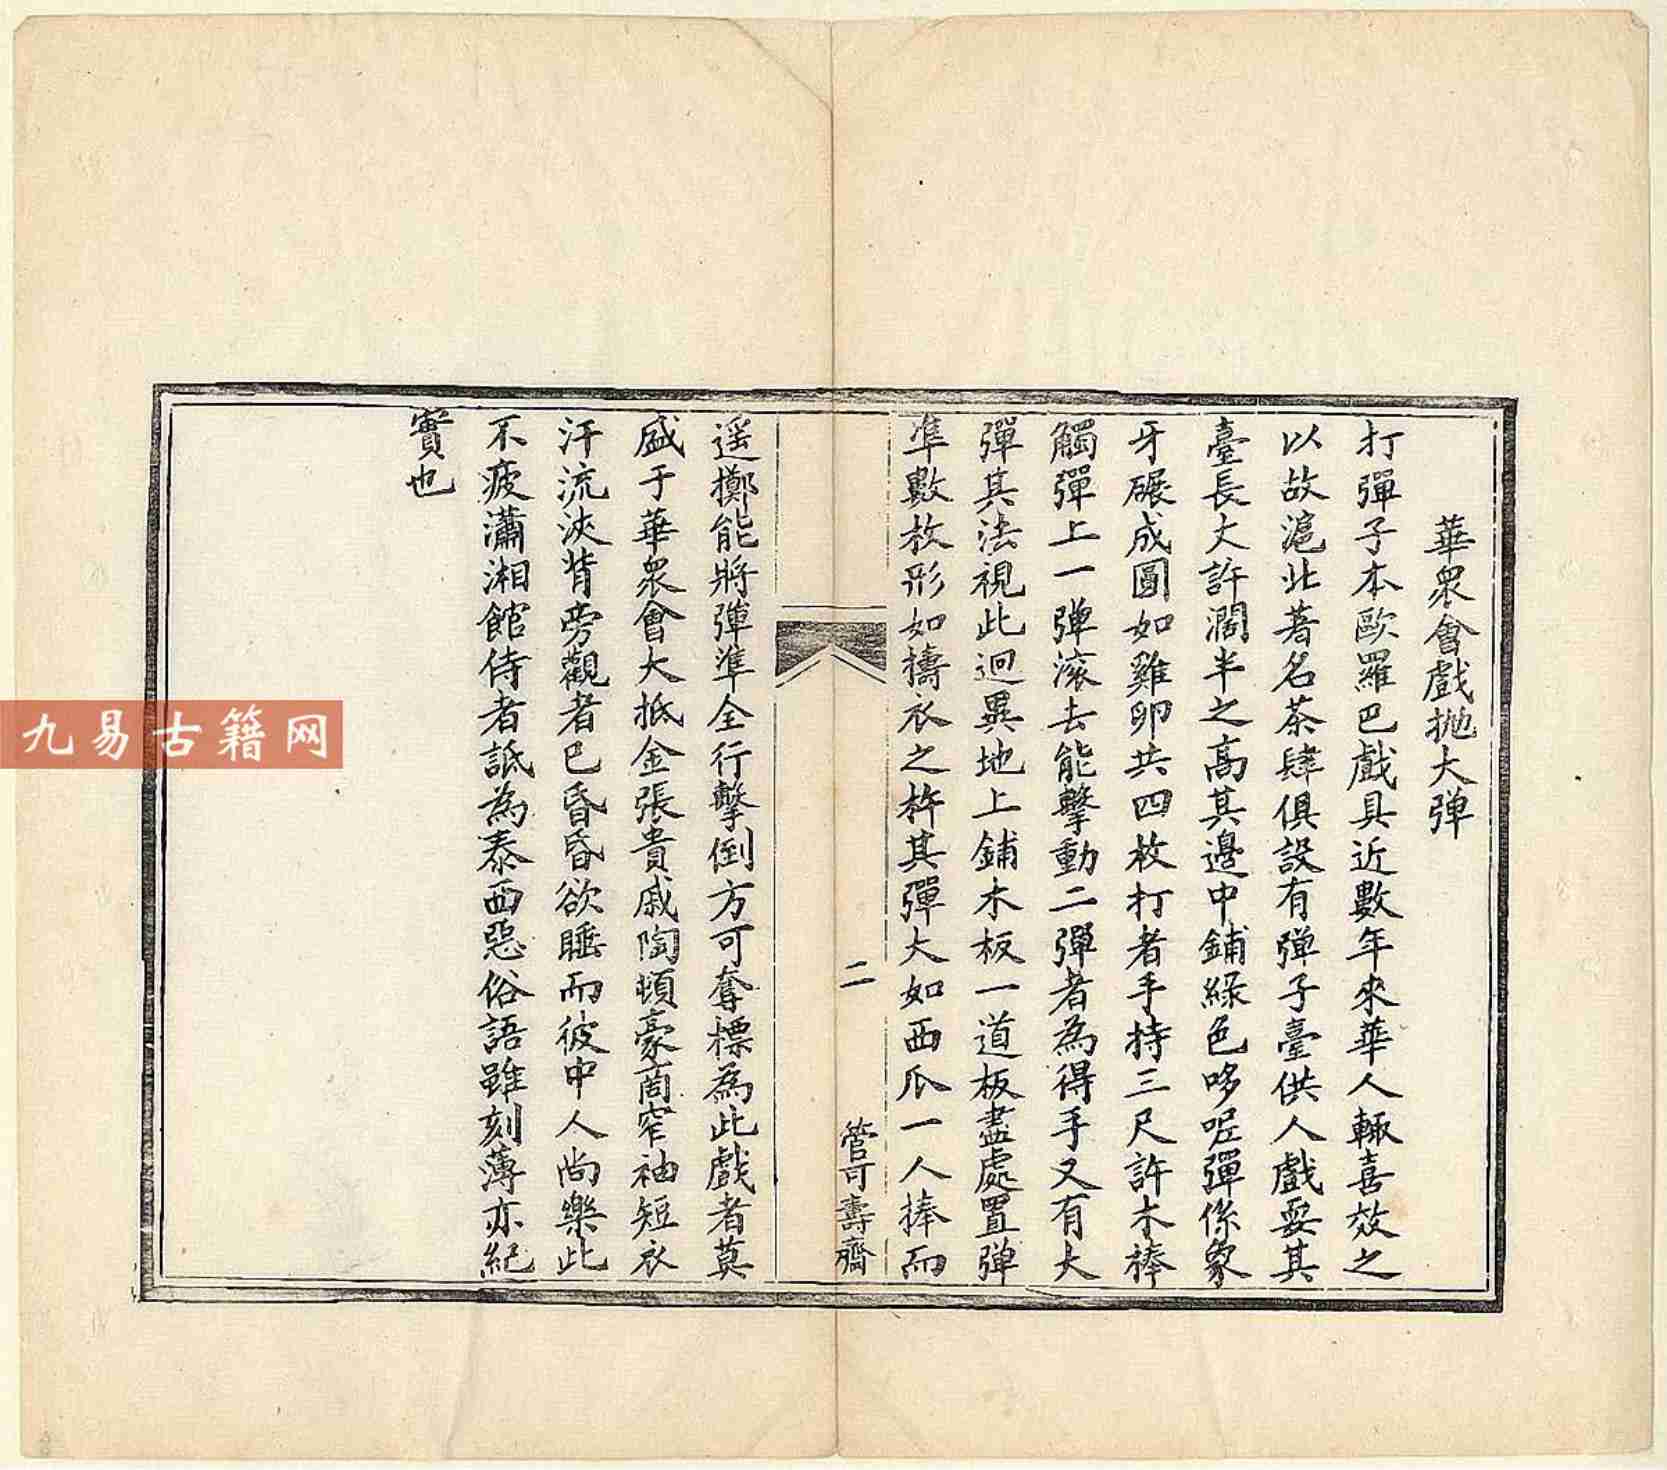 華眾會戲拋大彈
打彈子本歐羅巴戲具近數年來華人輒喜效之
以故滬北著名茶肆俱設有弹子臺供人戲耍其
臺長丈許濶半之高其邊中鋪綠色哆呢彈係象
牙碾成圓如雞卵共四枚打者手持三尺許木棒
觸彈上一弹滾去能擊動二彈者為得手又有大
彈其法視此迥異地上鋪木板一道板盡處置弹
準數枚形如擣衣之杵其彈大如西瓜一人捧而
二
管可壽齋
遥擲能將弹準全行擊倒方可奪標為此戲者莫
盛于華眾會大抵金張貴戚陶頓豪商窄袖短衣
汗流浹背旁觀者已昏昏欲睡而彼中人尚樂此
不疲瀟湘館侍者詆為泰西惡俗語雖刻薄亦紀
實也
九易古籍网